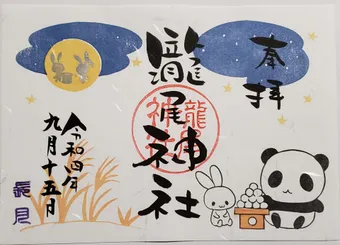 奉拝
瀧尾神社
龍尾
神社
令和四年
九月十五日
長月